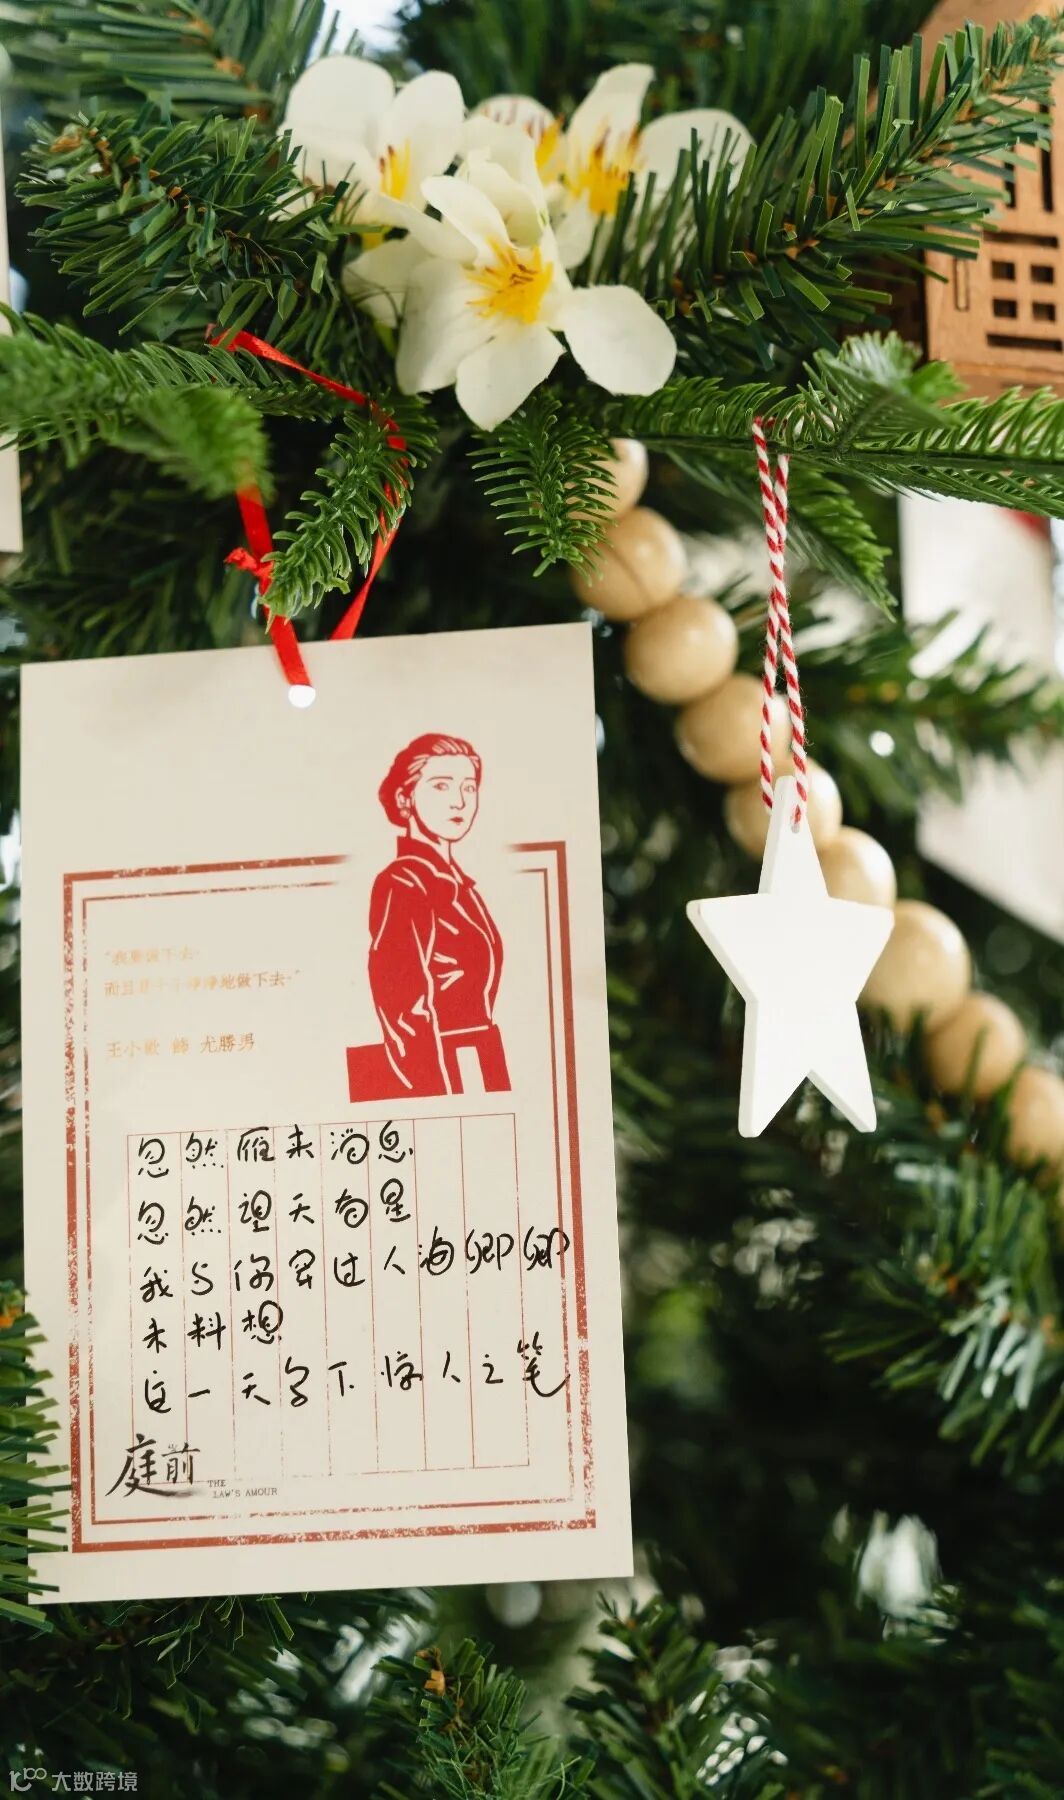 “我要做下去，
而且是干干净净地做下去。”
王小歡 飾 尤勝男
忽然雁来消息
忽然望天有星
我与你穿过人海卿卿
未料想
这一天会下惊人之笔
庭前
THE
LAW'S AMOUR
大数跨境